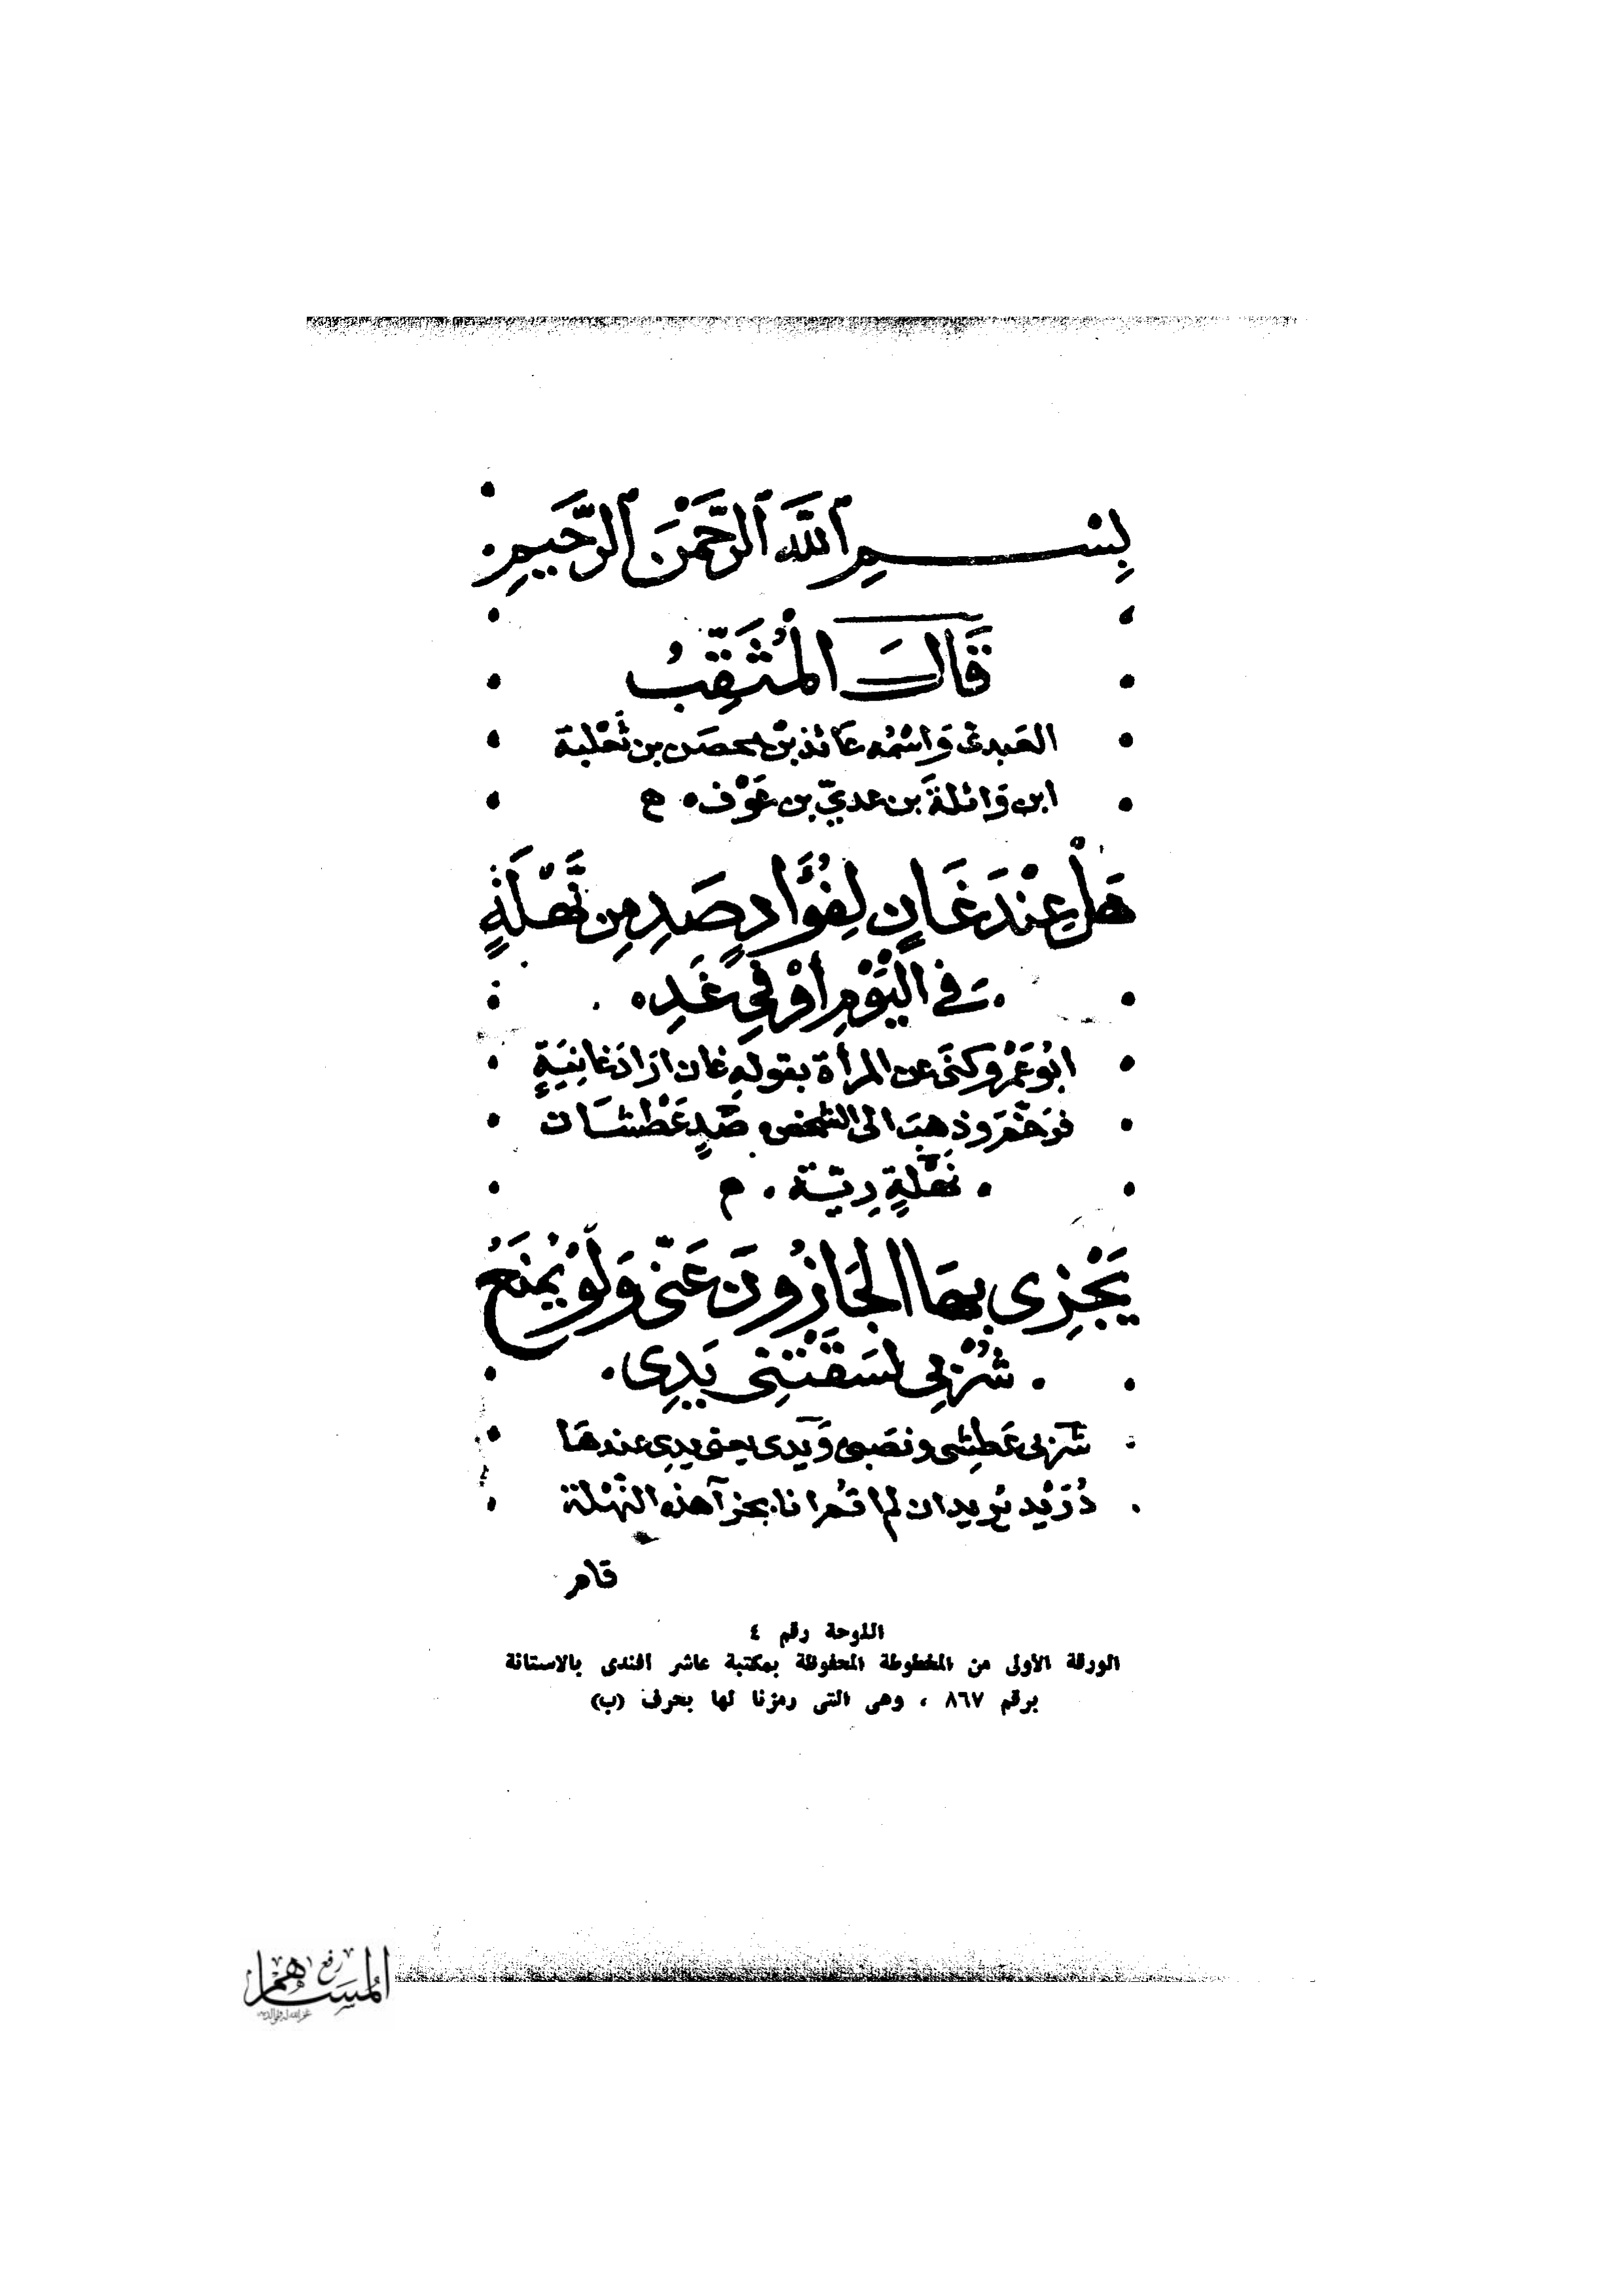 بِسْمِ اللَّهِ الرَّحْمَنِ الرَّحِيمِ
قَالَ الْمُثَقِّبُ
العَبدى وَاسْمُه عَائذ بْن محصَن بن ثَعْلبة
ابن وَائلةَ بَن عديّ بن عَوْف ه
هَل عِنْدَ غَانٍ لِفُؤَادٍ صَدِ مِن نَّهْلَةٍ
فى اليَوْمِ أَوْ فِي غَدِ
ابُو عَمْرو كنَى عن المرأة بقولهِ غان ارَادَ غانِيَةٍ
فرَخَّمَ وذهبَ الى الشخص صَدٍ عَطْشَان
نَهْلَةٍ رِيّة . م
يَجْزِى بِهَا الجَازُونَ عَنّى وَلَوْ يُمْنَعُ
شُرْبِي لَسَقَتْنِى يَدِى
شربى عَطِشى ونصَبى وَيدى يعنى يدِى عندهَا
تُرِيد ان لم اتمرانا بجزآ هذه النَهْلة
قام
اللوحة رقم ٤
الورقة الأولى من المخطوطة المحفوظة بمكتبة عاشر افندى بالاستانة
برقم ٨٦٧ ، وهى التى رمزنا لها بحرف (ب)
رفع
المساهم
غفر الله له ولوالديه